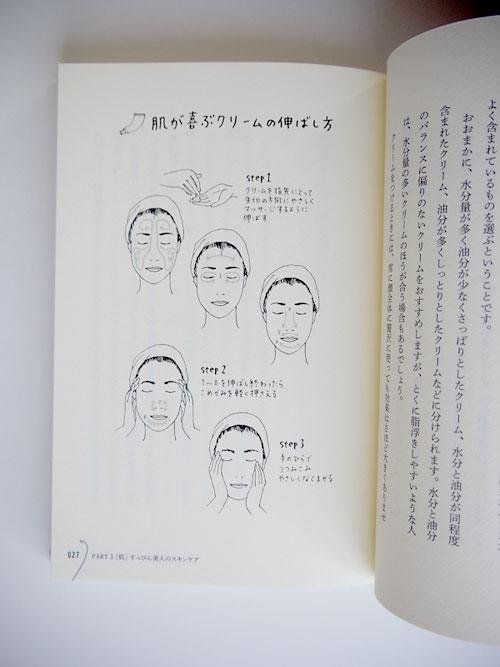 肌が喜ぶクリームの伸ばし方
step 1
クリームを指先にとって
矢印の方向にやさしく
マッサージするように
伸ばす
step 2
1〜8を伸ばし終わったら
こめかみを軽く押さえる
step 3
手のひらで
つつみこみ
やさしくなじませる
027
PART 1［肌］すっぴん美人のスキンケア
よく含まれているものを選ぶということです。
おおまかに、水分量が多く油分が少なくさっぱりとしたクリーム、水分と油分が同程度
含まれたクリーム、油分が多くしっとりとしたクリームなどに分けられます。水分と油分
のバランスに偏りのないクリームをおすすめしますが、とくに脂浮きしやすいような人
は、水分量の多いクリームのほうが合う場合もあるでしょう。
クリームをつけるときには、常に顔全体に贅沢に使っても効果はさほど大きくありませ